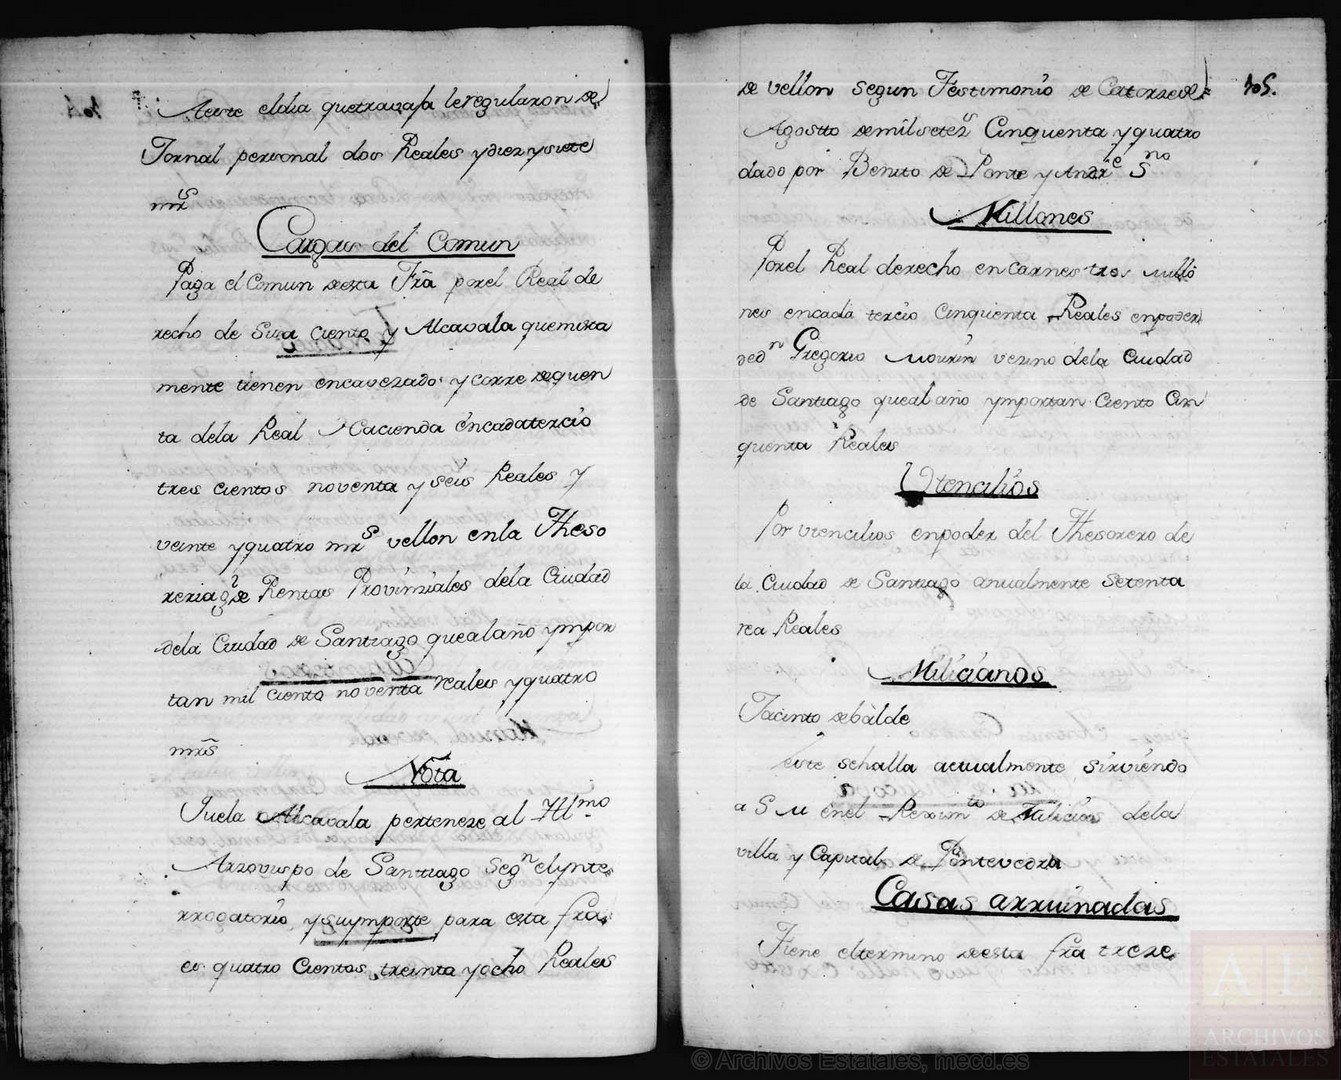 Aeste eldia quetravaja leregularon de
Jornal personal dos Reales ydiez ysiete
mrs
Cargas del Comun
Paga el Comun desta Fra porel Real de
recho de Sisa Ciento y Alcavala quemista
mente tienen encavezado y corre dequen
ta dela Real Hacienda encadatercio
tres cientos noventa y seis Reales y
veinte yquatro mrs vellon enla Theso
reria de Rentas Provinziales dela Ciudad
dela Ciudad de Santiago quealaño ympor
tan mil ciento noventa reales yquatro
mrs
Nota
Quela Alcavala pertenese al Illmo
Arzovispo de Santiago Segn elynte
rrogatorio ysuymporte para esta fra
es quatro Cientos treinta yocho Reales
de vellon segun Testimonio de Catorzede
Agostto demilsetezs Cinquenta yquatro
dado por Benito de Ponte y Andre Sno
Millones
Porel Real derecho encarnes tres millo
nes encada tercio Cinquenta Reales enpoder
dedn Gregorio Mourin vezino dela Ciudad
de Santiago quealaño ymportan Ciento Cin
quenta Reales
Utencilios
Por utencilios enpoder del Thesorero de
la Ciudad de Santiago anualmente Setenta
rea Reales
Miliçianos
Jacinto debalde
este sehalla actualmente sirviendo
a S M enel Reximto de Milicias dela
villa y Capital de Pontevedra
Casas arruinadas
Tiene eltermino desta fra treze
705.
© Archivos Estatales, mecd.es
AE
ARCHIVOS
ESTATALES